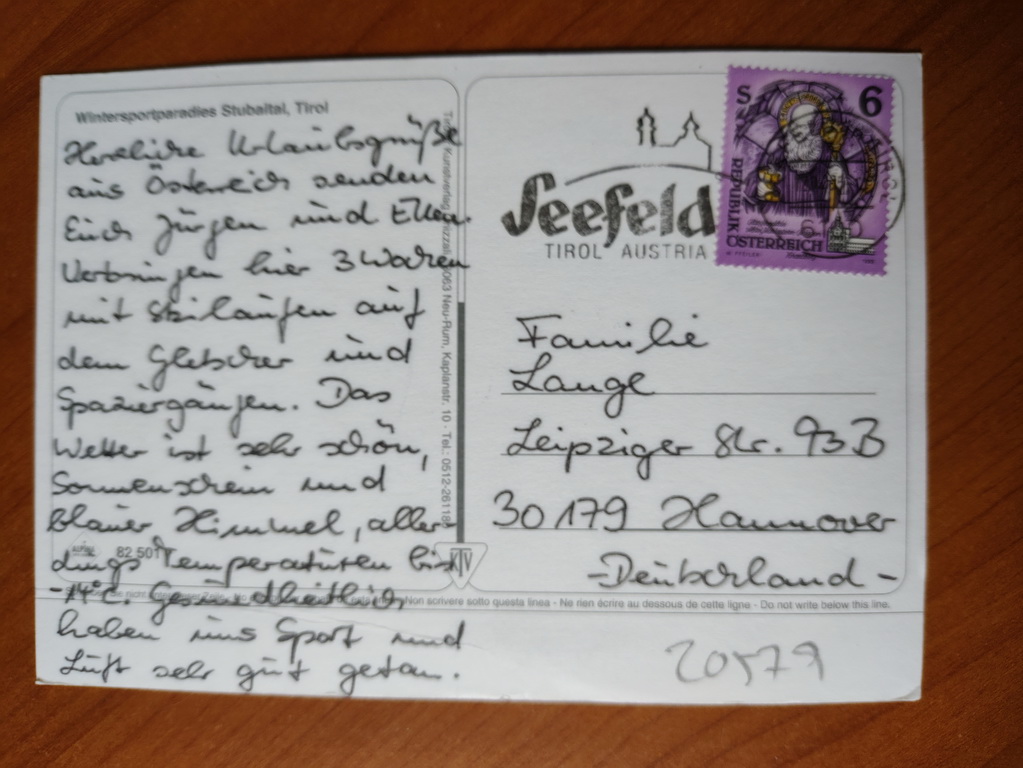 Wintersportparadies Stubaital, Tirol
Herzliche Urlaubsgrüße
aus Österreich senden
Euch Jürgen und Ellen.
Verbringen hier 3 Wochen
mit Skilaufen auf
dem Gletscher und
Spaziergängen. Das
Wetter ist sehr schön,
Sonnenschein und
blauer Himmel, aller-
dings Temperaturen bis
-14°C. Gesundheitlich
haben uns Sport und
Luft sehr gut getan.
82 501
Kunstverlag 6063 Neu-Rum, Kaplanstr. 10 · Tel.: 0512-26118
KTV
Seefeld
TIROL AUSTRIA
S 6
REPUBLIK
ÖSTERREICH
Familie
Lange
Leipziger Str. 93 B
30179 Hannover
- Deutschland -
Non scrivere sotto questa linea - Ne rien écrire au dessous de cette ligne - Do not write below this line.
20579